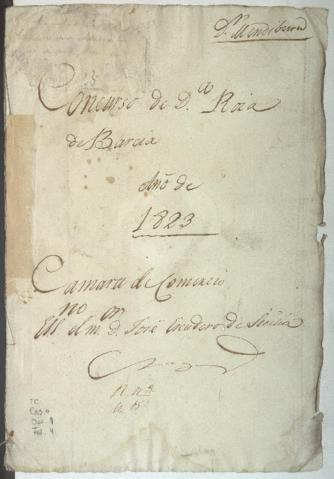 Dr. Mendiburu
Concurso de D.a Rosa
de Barcia
Año de
1823
Camara de Comercio
no or
Ess.no el m. d. José Escudero de Sicilia
TC
Cas. 4
Doc. 8
Fol. 4